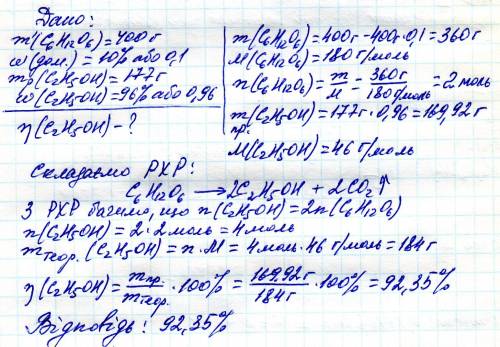 Дано:
m(C6H12O6)=400г
ω(дом.)=10% або 0,1
mр(C2H5OH)=177г
ω(C2H5OH)=96% або 0,96
η(C2H5OH)-?
m(C6H12O6)=400г-400г·0,1=360г
M(C6H12O6)=180г/моль
n(C6H12O6)=m/M=360г/180г/моль=2 моль
mпр.(C2H5OH)=177г·0,96=169,92г
M(C2H5OH)=46г/моль
Складаємо РХР:
C6H12O6→2C2H5OH+2CO2↑
З РХР бачимо, що n(C2H5OH)=2n(C6H12O6)
n(C2H5OH)=2·2моль=4моль
mтеор.(C2H5OH)=n·M=4моль·46г/моль=184г
η(C2H5OH)=mпр./mтеор.·100%=169,92г/184г·100%=92,35%
Відповідь: 92,35%